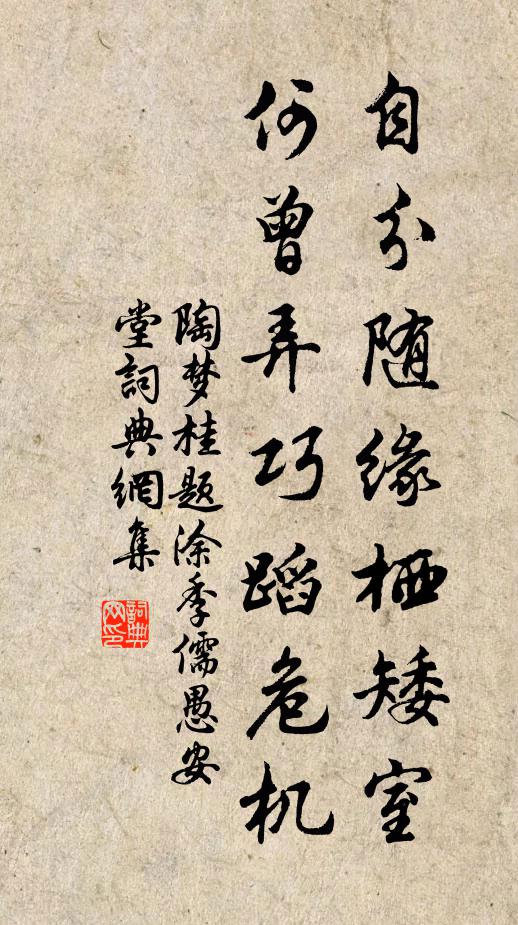 自分随缘栖矮室
何曾弄巧蹈危机
陶梦桂题涂季儒愚安
堂词典網集
詞典
网印